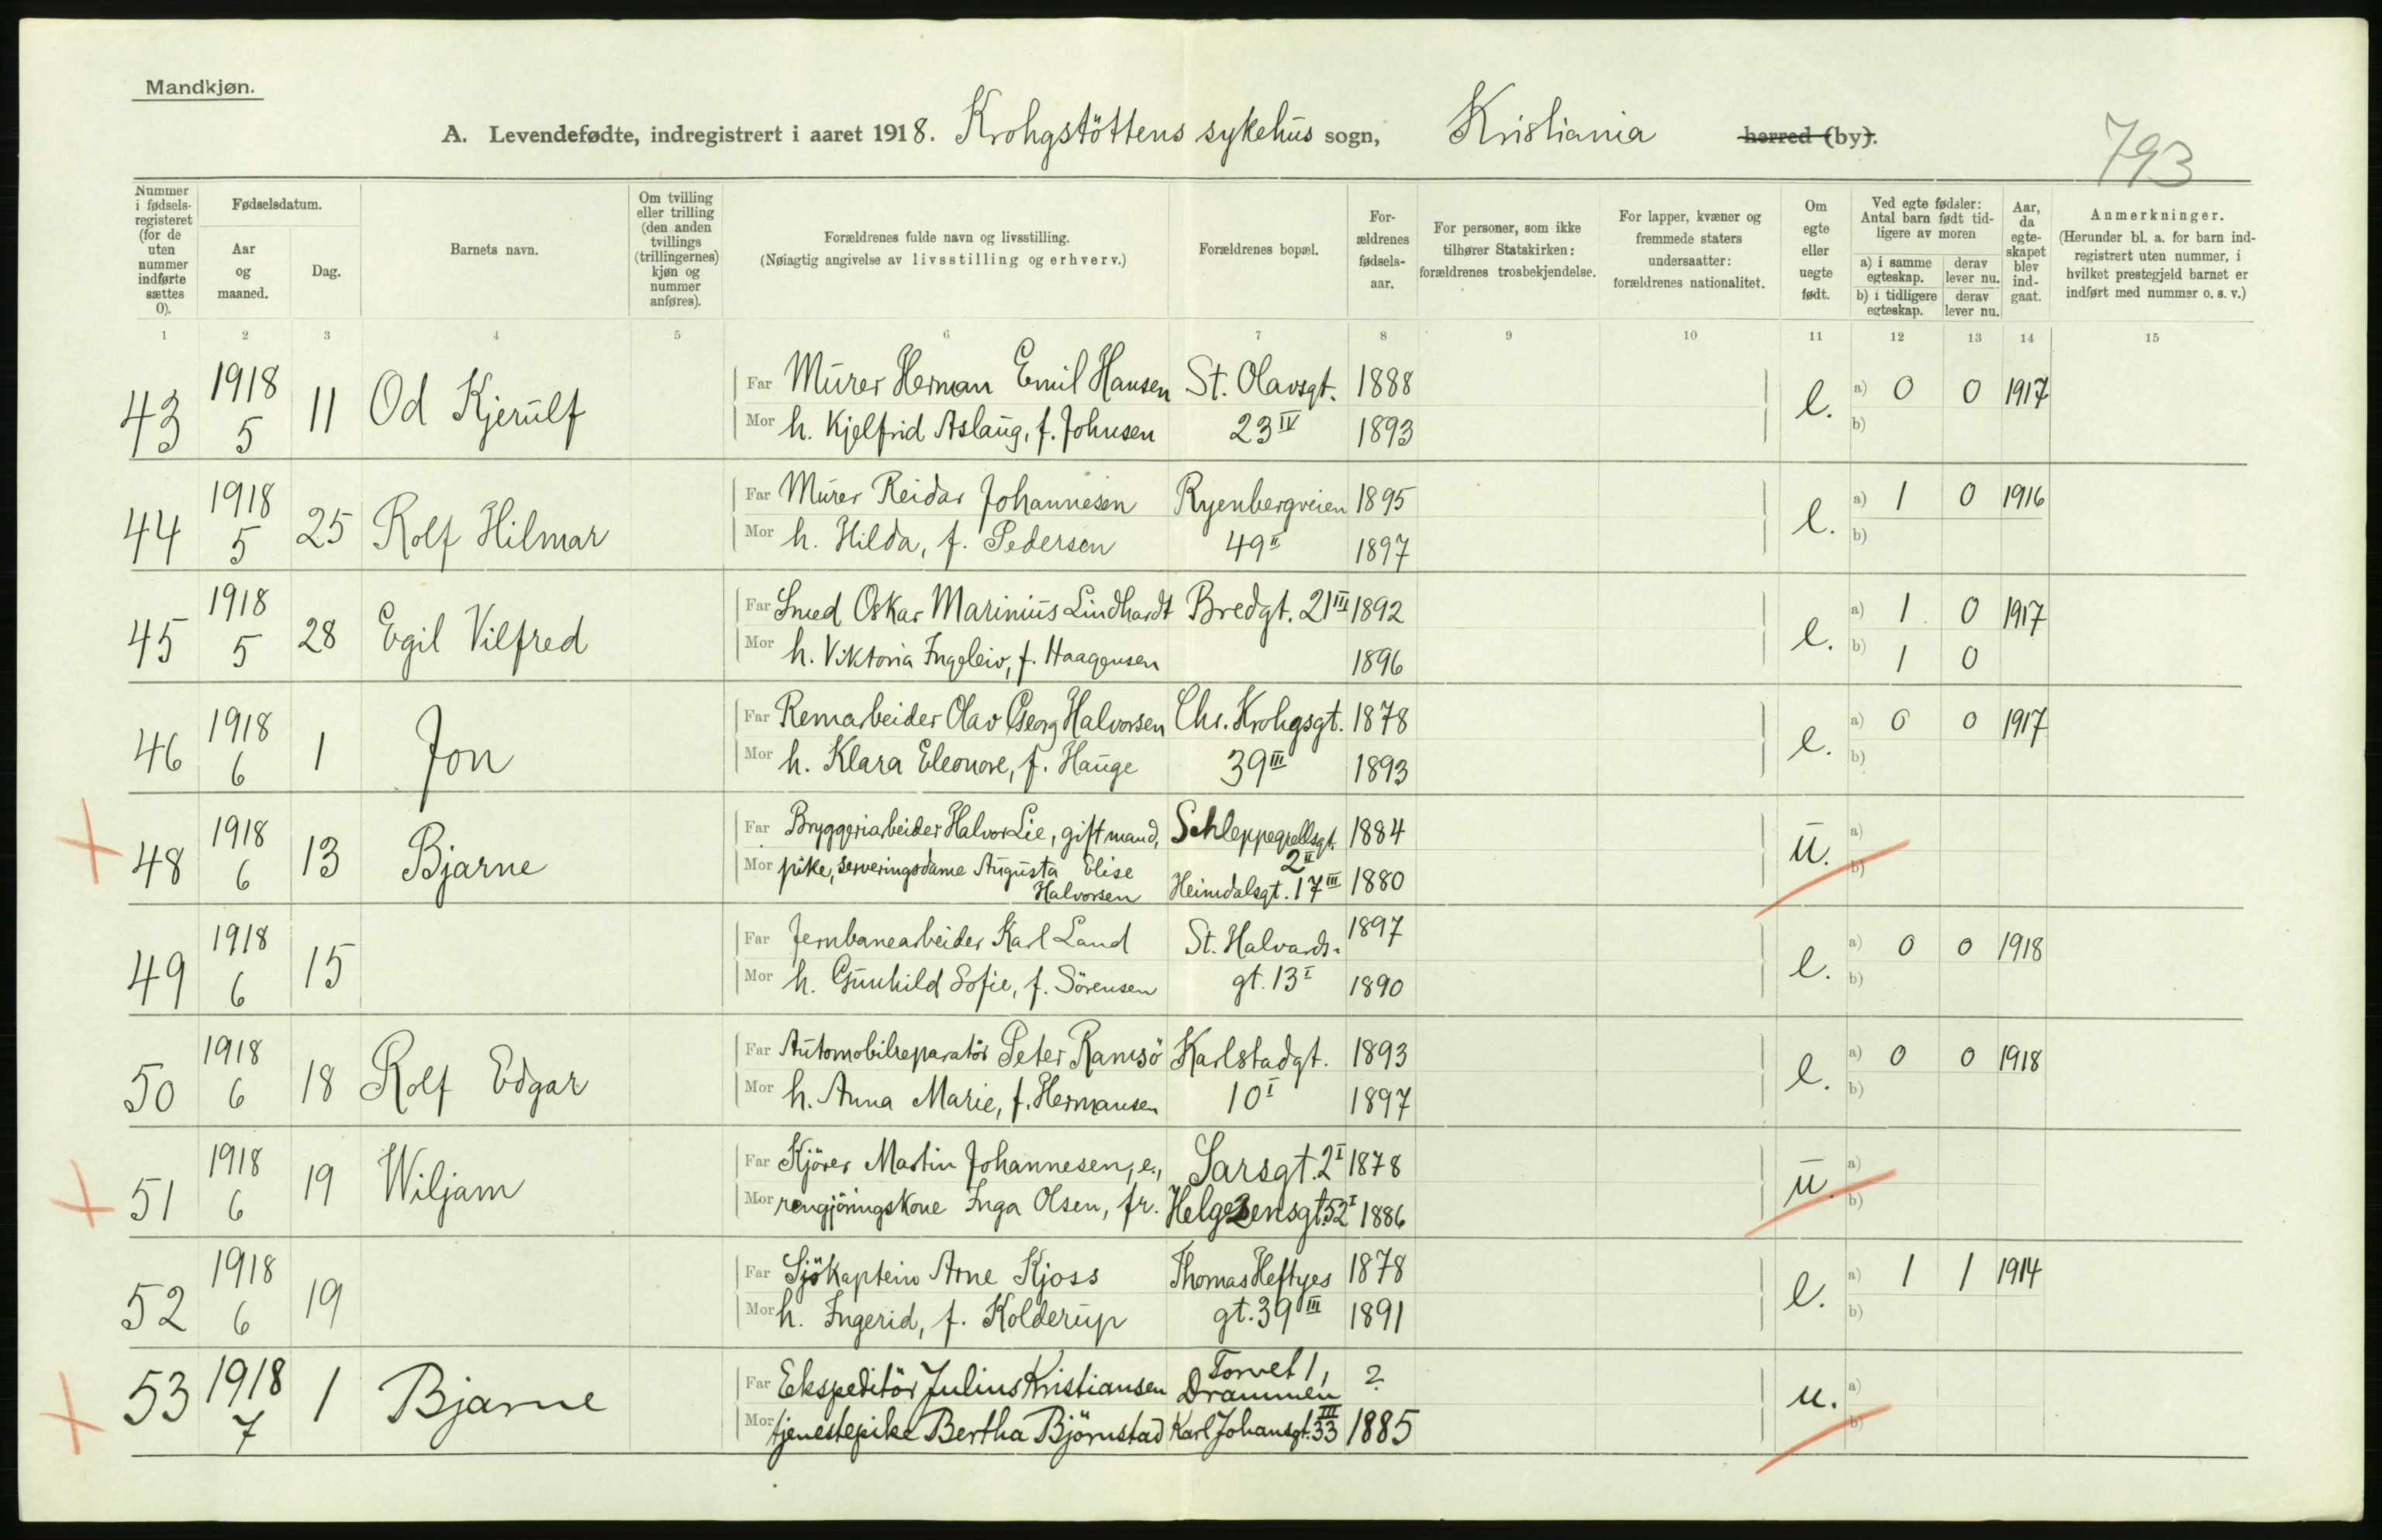 Mandkjøn.
A. Levendefødte, indregistrert i aaret 1918. Krohgstöttens sykehus sogn, Kristiania herred (by).
793
Nummer i fødsels-registeret (for de uten nummer indførte sættes 0).
Fødselsdatum.
Aar og maaned.
Dag.
Barnets navn.
Om tvilling eller trilling (den anden tvillings (trillingernes) kjøn og nummer anføres).
Forældrenes fulde navn og livsstilling.
(Nøiagtig angivelse av livsstilling og erhverv.)
Forældrenes bopæl.
For-ældrenes fødsels-aar.
For personer, som ikke tilhører Statskirken: forældrenes trosbekjendelse.
For lapper, kvæner og fremmede staters undersaatter: forældrenes nationalitet.
Om egte eller uegte født.
Ved egte fødsler: Antal barn født tid-ligere av moren
a) i samme egteskap. derav lever nu.
b) i tidligere egteskap. derav lever nu.
Aar, da egte-skapet blev ind-gaat.
Anmerkninger.
(Herunder bl. a. for barn ind-registrert uten nummer, i hvilket prestegjeld barnet er indført med nummer o. s. v.)
1 2 3 4 5 6 7 8 9 10 11 12 13 14 15
43 1918 5 11 Od Kjerulf Far Murer Herman Emil Hansen St. Olavsgt. 1888 e. a) 0 0 1917
Mor h. Kjelfrid Aslaug, f. Johnsen 23 IV 1893 b)
44 1918 5 25 Rolf Hilmar Far Murer Reidar Johannesen Ryenbergveien 1895 e. a) 1 0 1916
Mor h. Hilda, f. Pedersen 49 II 1897 b)
45 1918 5 28 Egil Vilfred Far Smed Oskar Marinius Lindhardt Bredgt. 21 III 1892 e. a) 1 0 1917
Mor h. Viktoria Ingeleiv, f. Haagensen 1896 b) 1 0
46 1918 6 1 Jon Far Remarbeider Olav Georg Halvorsen Chr. Krohgsgt. 1878 e. a) 0 0 1917
Mor h. Klara Eleonore, f. Hauge 39 III 1893 b)
48 1918 6 13 Bjarne Far Bryggeriarbeider Halvor Lie, gift mand, Schleppegrellsgt. 2 II 1884 u. a)
Mor pike, serveringsdame Augusta Elise Halvorsen Heimdalsgt. 17 III 1880 b)
49 1918 6 15 Far Jernbanearbeider Karl Land St. Halvards- 1897 e. a) 0 0 1918
Mor h. Gunhild Sofie, f. Sörensen gt. 13 I 1890 b)
50 1918 6 18 Rolf Edgar Far Automobilreparatör Peter Ramsö Karlstadgt. 1893 e. a) 0 0 1918
Mor h. Anna Marie, f. Hermansen 10 I 1897 b)
51 1918 6 19 Wiljam Far Kjörer Martin Johannesen, e., Sarsgt. 2 I 1878 u. a)
Mor rengjöringskone Inga Olsen, fr. Helgesensgt. 52 I 1886 b)
52 1918 6 19 Far Sjökaptein Arne Kjoss Thomas Heftyes 1878 e. a) 1 1 1914
Mor h. Ingerid, f. Kolderup gt. 39 III 1891 b)
53 1918 7 1 Bjarne Far Ekspeditör Julius Kristiansen Torvet 1, Drammen ? u. a)
Mor tjenestepike Bertha Björnstad Karl Johansgt. 33 III 1885 b)